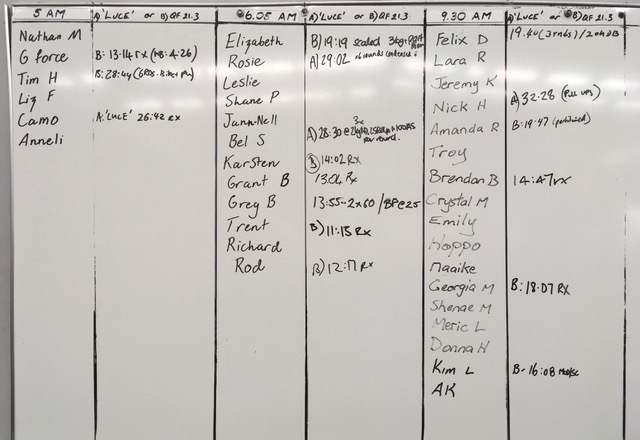 5 AM
A) 'LUCE' or B) QF 21.3
Nathan M
G force B: 13:14 rx (NB: 4-26)
Tim H B: 28:44
Liz F
Camo A: 'LUCE' 26:42 RX
Anneli
6.05 AM
A) 'LUCE' or B) QF 21.3
Elizabeth B) 19:19 scaled
Rosie A) 29:02
Leslie
Shane P
Jann-Nell
3x
Bel S A) 28:30 @
per round
Karsten B) 14:02 RX
Grant B 13:04 Rx
Greg B 13:55-2x60 / BP@25
Trent B) 11:15 Rx
Richard
Rod B) 12:17 RX
9.30 AM
A) 'LUCE' or B) QF 21.3
Felix D 19.40 (3 rnds)
Lara R
Jeremy K
Nick H A) 32:28 (Pull ups)
Amanda R B: 19:47
Troy
Brendan B 14:47 rx
Crystal M
Emily
Hoppo
Maaike
Georgia M B: 18:07 RX
Shenae M
Meric L
Donna H
Kim L B- 16:08
AK